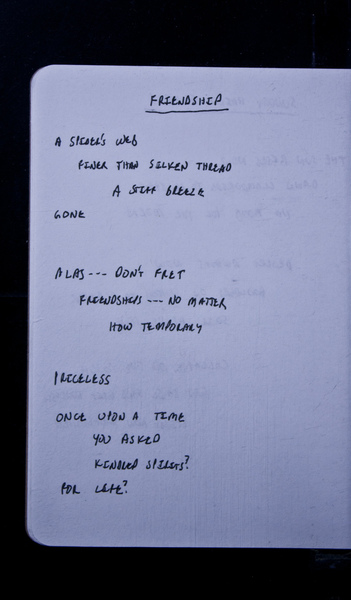 FRIENDSHIP
A SPIDER'S WEB
FINER THAN SILKEN THREAD
A STIFF BREEZE
GONE
ALAS --- DON'T FRET
FRIENDSHIPS --- NO MATTER
HOW TEMPORARY
PRICELESS
ONCE UPON A TIME
YOU ASKED
KINDRED SPIRITS?
FOR LIFE?